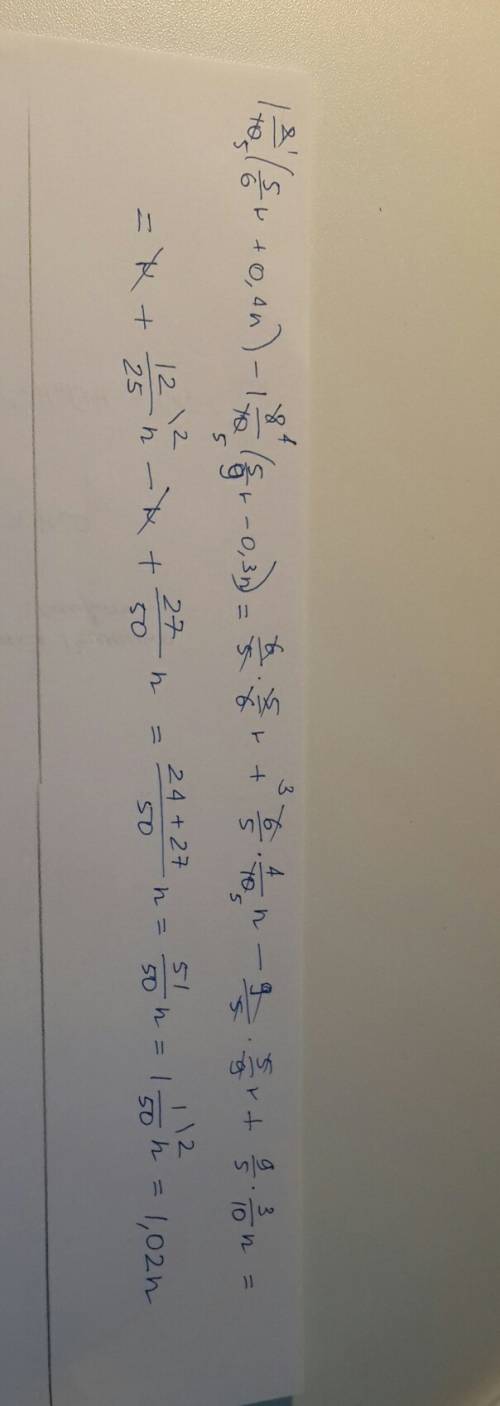 1 2/10 (5/6 r + 0,4n) − 1 8/10 (5/9 r − 0,3n) = 6/5 · 5/6 r + 6/5 · 4/10 n − 9/5 · 5/9 r + 9/5 · 3/10 n =
= r + 12/25 \2 n − r + 27/50 n = (24 + 27)/50 n = 51/50 n = 1 1/50 \2 n = 1,02n